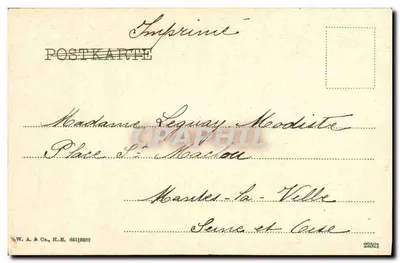 Imprimé
POSTKARTE
Madame Leguay Modiste
CPAPHIL
Place St Maclou
Mantes-la-Ville
Seine et Oise
W. A. & Co., H.-H.
22321